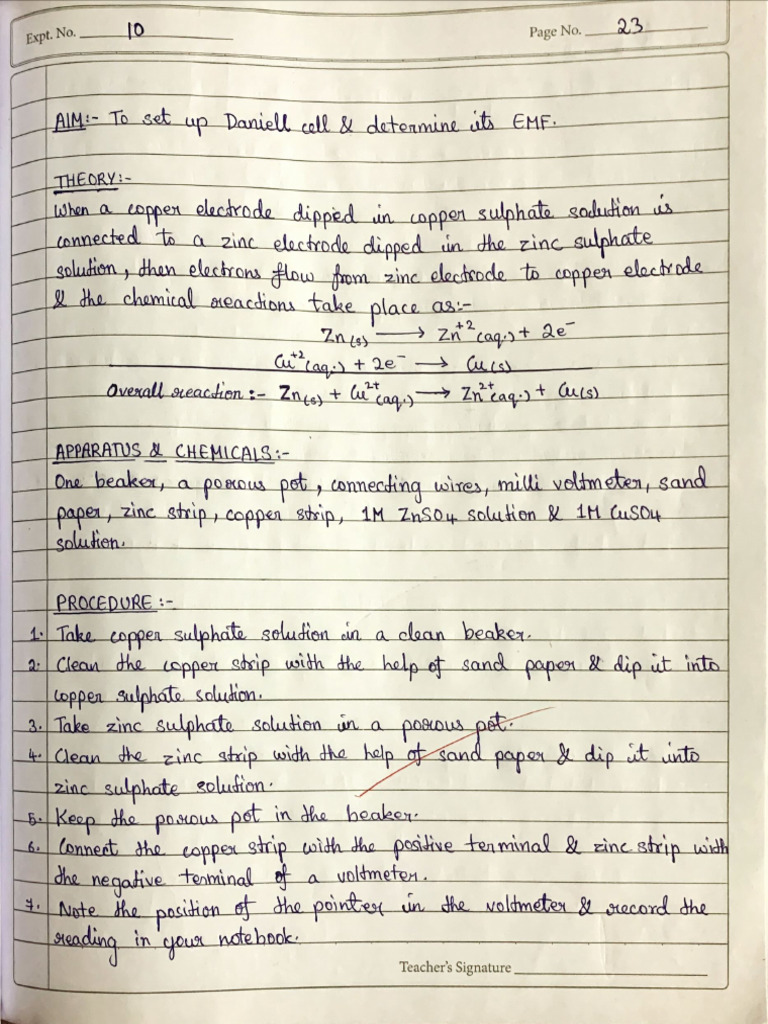 Expt. No. 10
Page No. 23
AIM:- To set up Daniell cell & determine its EMF.
THEORY:-
When a copper electrode dipped in copper sulphate solution is
connected to a zinc electrode dipped in the zinc sulphate
solution, then electrons flow from zinc electrode to copper electrode
& the chemical reactions take place as:-
Zn(s) ⟶ Zn⁺²(aq.) + 2e⁻
Cu⁺²(aq.) + 2e⁻ ⟶ Cu(s)
Overall reaction:- Zn(s) + Cu²⁺(aq.) ⟶ Zn²⁺(aq.) + Cu(s)
APPARATUS & CHEMICALS:-
One beaker, a porous pot, connecting wires, milli voltmeter, sand
paper, zinc strip, copper strip, 1M ZnSO4 solution & 1M CuSO4
solution.
PROCEDURE:-
1. Take copper sulphate solution in a clean beaker.
2. Clean the copper strip with the help of sand paper & dip it into
copper sulphate solution.
3. Take zinc sulphate solution in a porous pot.
4. Clean the zinc strip with the help of sand paper & dip it into
zinc sulphate solution.
5. Keep the porous pot in the beaker.
6. Connect the copper strip with the positive terminal & zinc strip with
the negative terminal of a voltmeter.
7. Note the position of the pointer in the voltmeter & record the
reading in your notebook.
Teacher's Signature